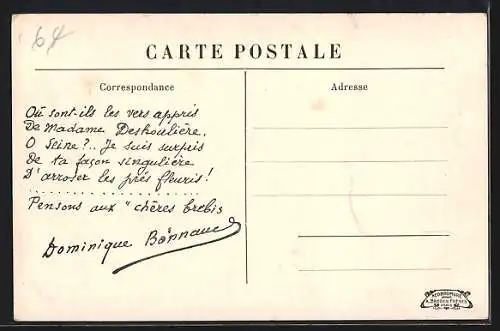 64
CARTE POSTALE
Correspondance
Adresse
Où sont-ils les vers appris
De Madame Deshoulière,
O Seine ?.. Je suis surpris
de ta façon singulière
D'arroser les prés fleuris !
Pensons aux " chères brebis
Dominique Bonnaud